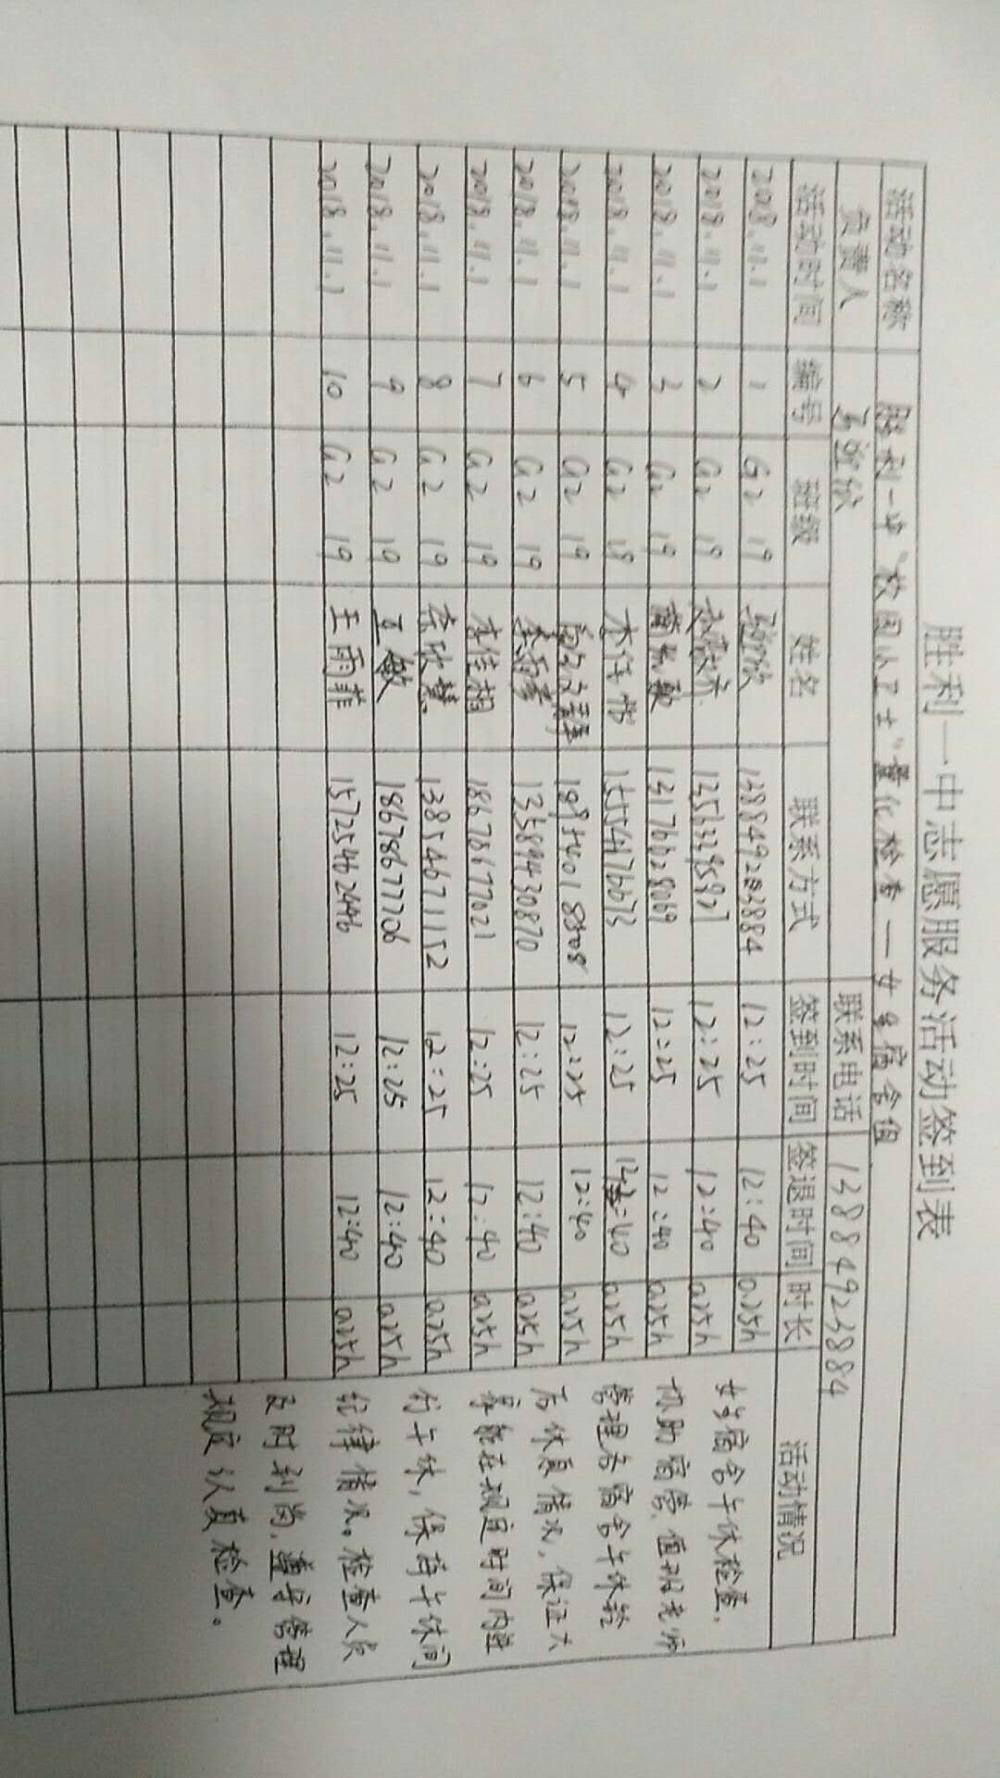 胜利一中志愿服务活动签到表
活动名称 胜利一中"校园小卫士"量化检查—女生宿舍组
负责人 联系电话 13884922884
活动时间 编号 班级 姓名 联系方式 签到时间 签退时间 时长 活动情况
2018.11.1 1 G2 19 12:25 12:40 0.25h
2018.11.1 2 G2 19 12:25 12:40 0.25h
2018.11.1 3 G2 19 12:25 12:40 0.25h
2018.11.1 4 G2 12:25 12:40 0.25h
2018.11.1 5 G2 19 12:25 12:40 0.25h
2018.11.1 6 G2 19 13589430870 12:25 12:40 0.25h
2018.11.1 7 G2 19 李佳桐 18678677021 12:25 12:40 0.25h
2018.11.1 8 G2 19 13854671152 12:25 12:40 0.25h
2018.11.1 9 G2 19 王敏 18678677706 12:25 12:40 0.25h
2018.11.1 10 G2 19 王雨菲 15725462446 12:25 12:40 0.25h
女生宿舍午休检查,
协助宿管、值班老师
管理各宿舍午休铃
后休息情况,保证大
家能在规定时间内进
行午休,保持午休间
纪律情况。检查人员
及时到岗,遵守管理
规定认真检查。